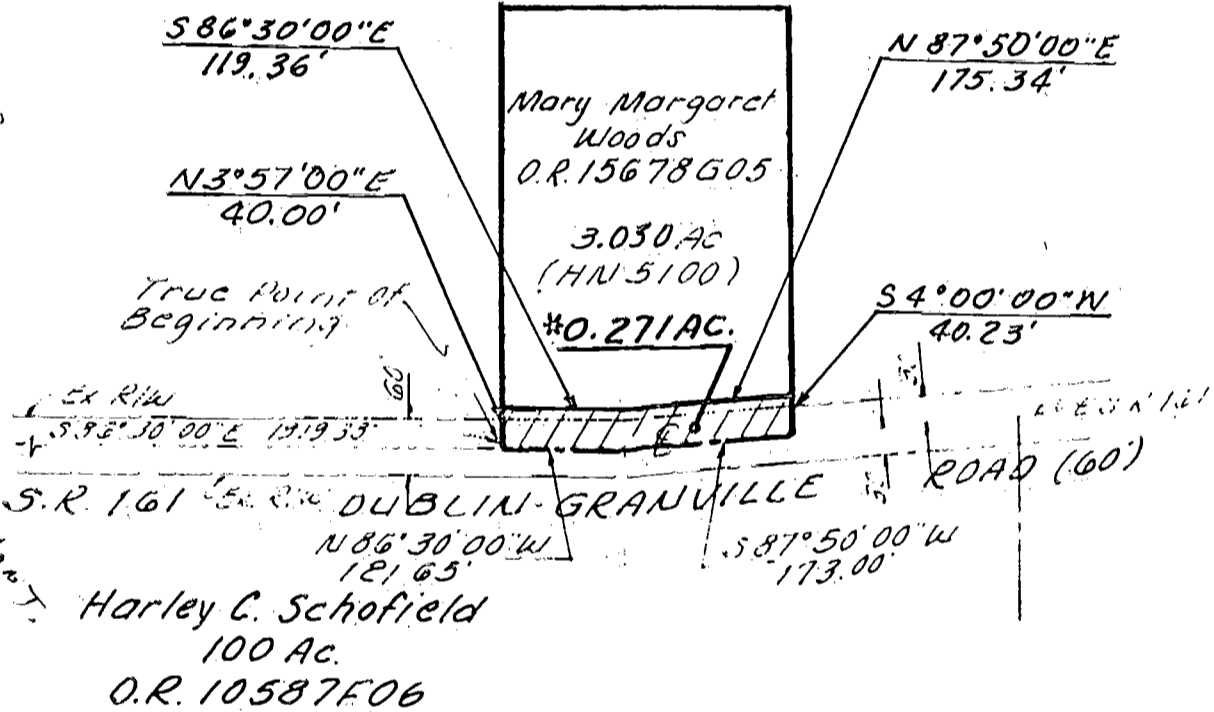 S 86°30'00"E
119.36'
N 87°50'00"E
175.34'
Mary Margaret
Woods
O.R. 15678G05
N3°57'00"E
40.00'
3.030 AC
(HN 5100)
True Point of
Beginning
#0.271AC.
S 4°00'00"W
40.23'
60'
Ex R/W
30'00"E
S.R. 161 Ex. R/W DUBLIN-GRANVILLE ROAD (60')
N86°30'00"W
121.65'
S87°50'00"W
173.00'
Harley C. Schofield
100 Ac.
O.R. 10587F06